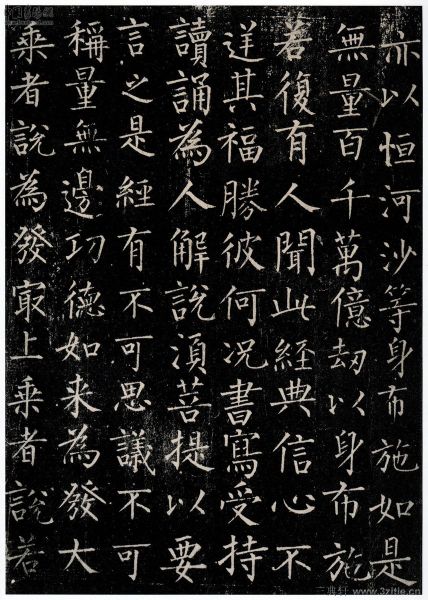 亦以恒河沙等身布施如是
無量百千萬億劫以身布施
若復有人聞此經典信心不
逆其福勝彼何况書寫受持
讀誦為人解說須菩提以要
言之是經有不可思議不可
稱量無邊功德如来為發大
乘者說為發冣上乘者說若
三典轩 www.3zitie.cn